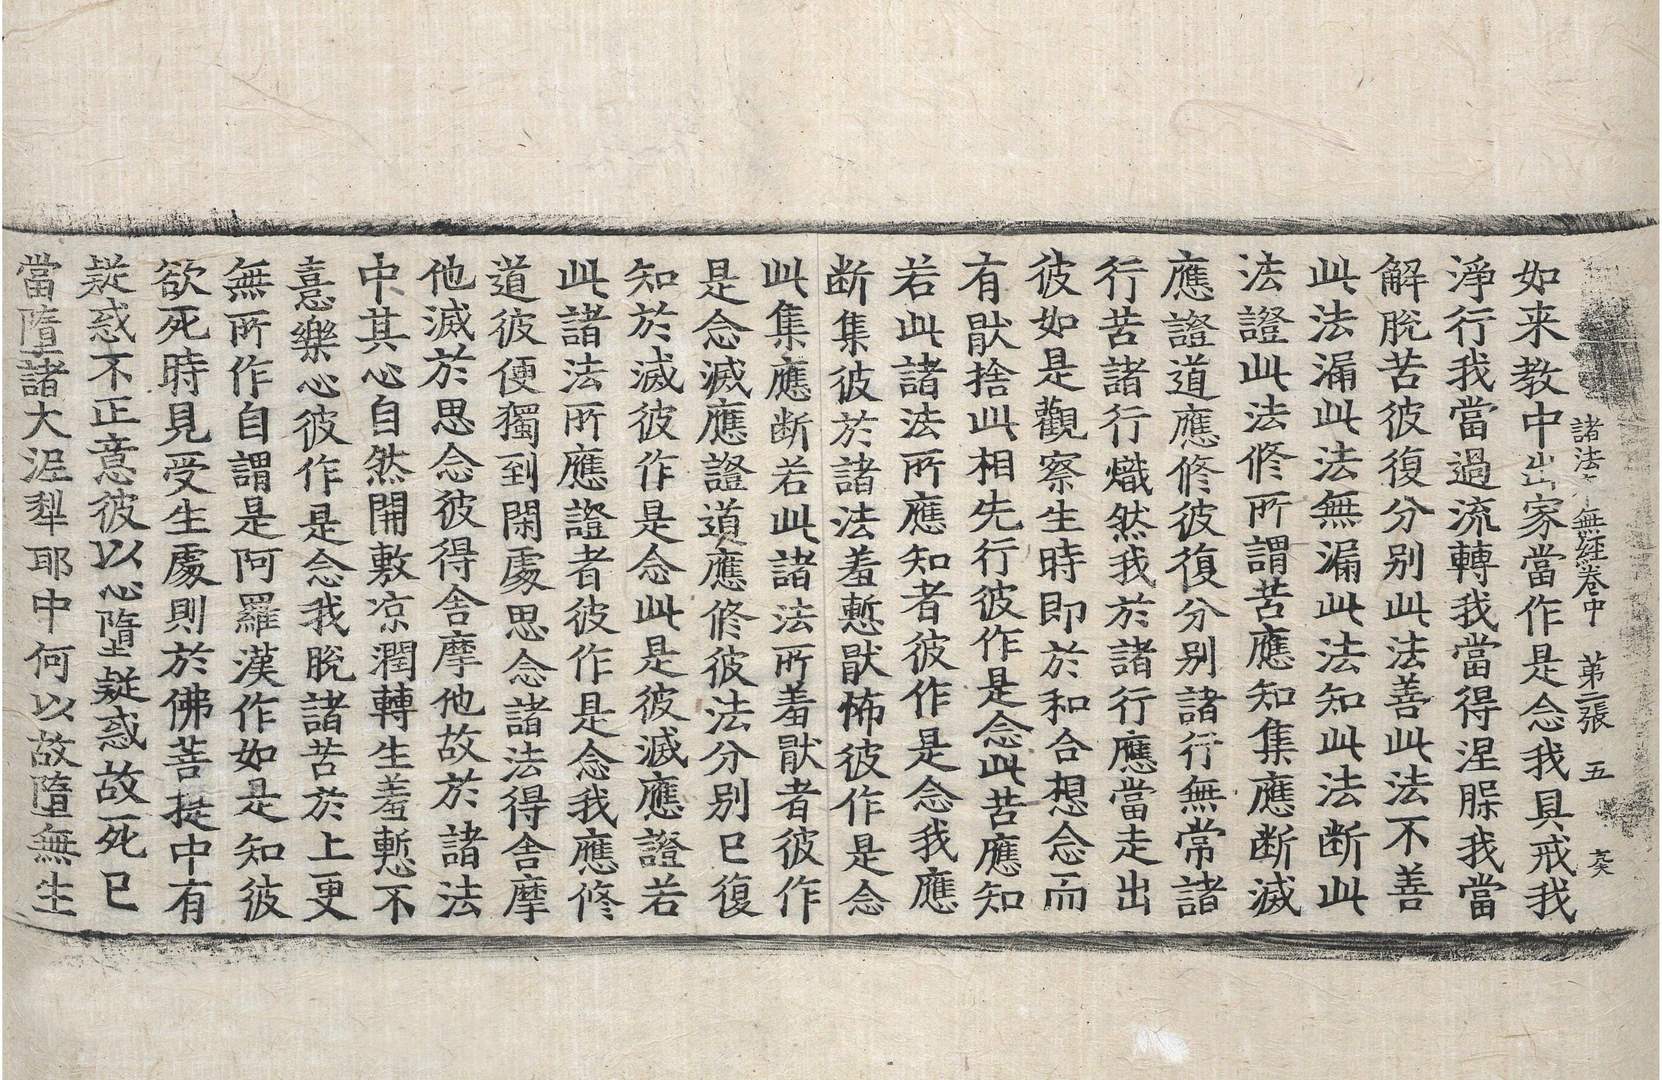 諸法 無経卷中 第二張 五 癸
如来教中出家當作是念我具戒我
淨行我當過流轉我當得涅槃我當
解脫苦彼復分別此法善此法不善
此法漏此法無漏此法知此法断此
法證此法修所謂苦應知集應断滅
應證道應修彼復分別諸行無常諸
行苦諸行熾然我於諸行應當走出
彼如是觀察生時即於和合想念而
有猒捨此相先行彼作是念此苦應知
若此諸法所應知者彼作是念我應
断集彼於諸法羞慙猒怖彼作是念
此集應断若此諸法所羞猒者彼作
是念滅應證道應修彼法分別已復
知於滅彼作是念此是彼滅應證若
此諸法所應證者彼作是念我應修
道彼便獨到閑處思念諸法得舍摩
他滅於思念彼得舍摩他故於諸法
中其心自然開敷凉潤轉生羞慙不
憙樂心彼作是念我脫諸苦於上更
無所作自謂是阿羅漢作如是知彼
欲死時見受生處則於佛菩提中有
疑惑不正意彼以心墮疑惑故死已
當墮諸大泥犁耶中何以故墮無生